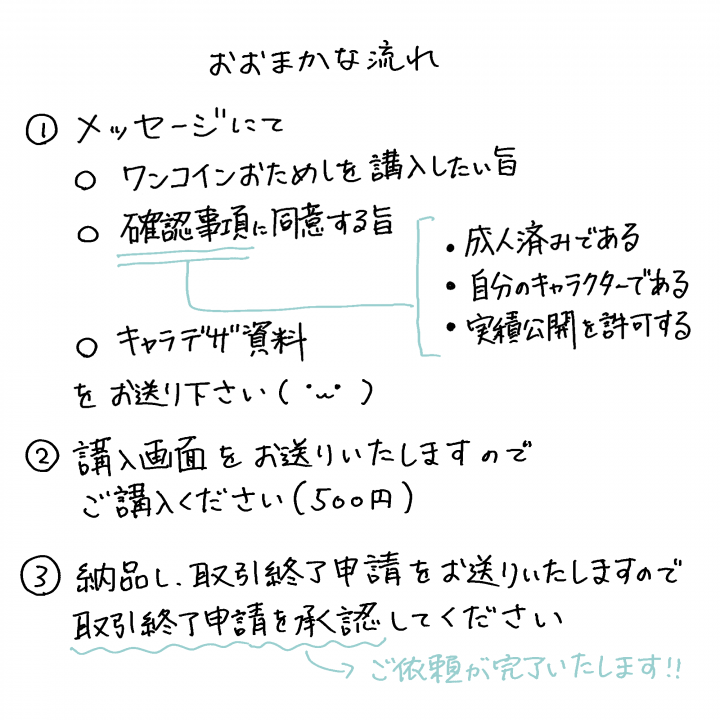 おおまかな流れ
① メッセージにて
○ ワンコインおためしを講入したい旨
○ 確認事項に同意する旨
・成人済みである
・自分のキャラクターである
・実績公開を許可する
○ キャラデザ資料
を お送り下さい ( ˙ω˙ )
② 講入画面を お送りいたしますので
ご講入ください (500円)
③ 納品し、取引終了申請をお送りいたしますので
取引終了申請を承認してください
→ ご依頼が完了いたします!!